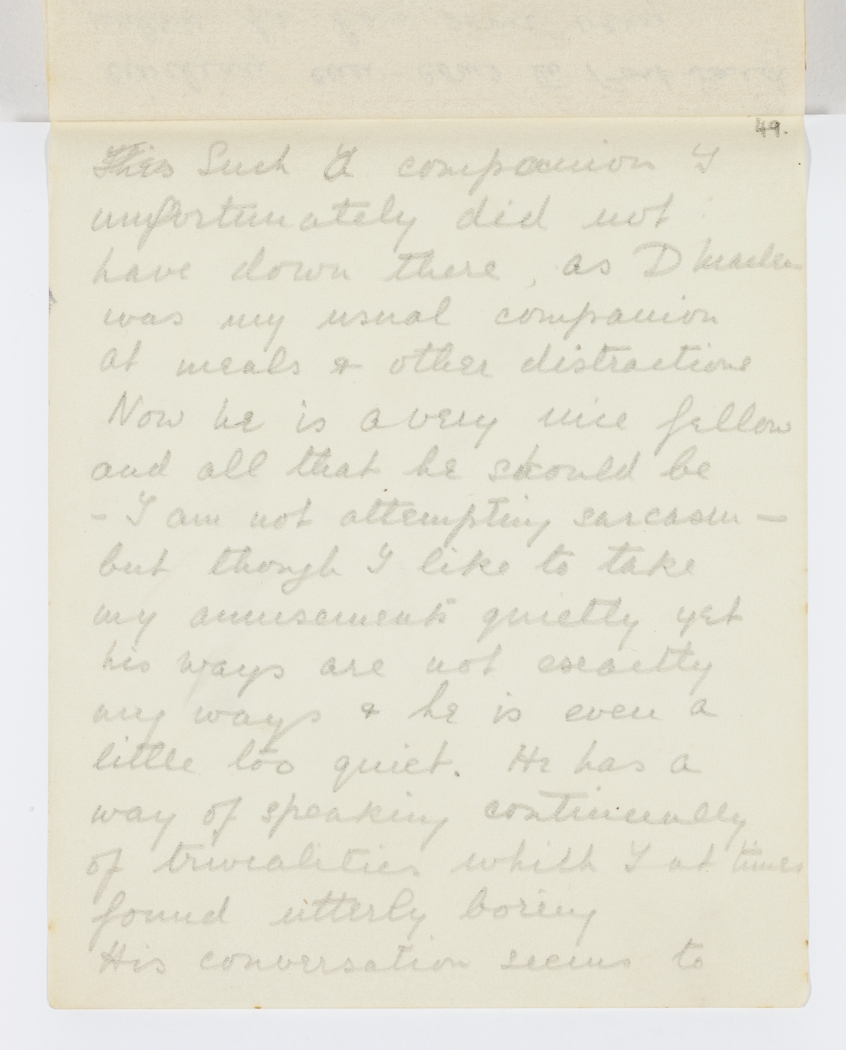 49.
Such a companion I
unfortunately did not
have down there, as D
was my usual companion
at meals & other distractions
Now he is a very nice fellow
and all that he should be
- I am not attempting sarcasm -
but though I like to take
my amusements quietly yet
his ways are not exactly
my ways & he is even a
little too quiet. He has a
way of speaking continually
of trivialities which I at times
found utterly boring
His conversation seems to